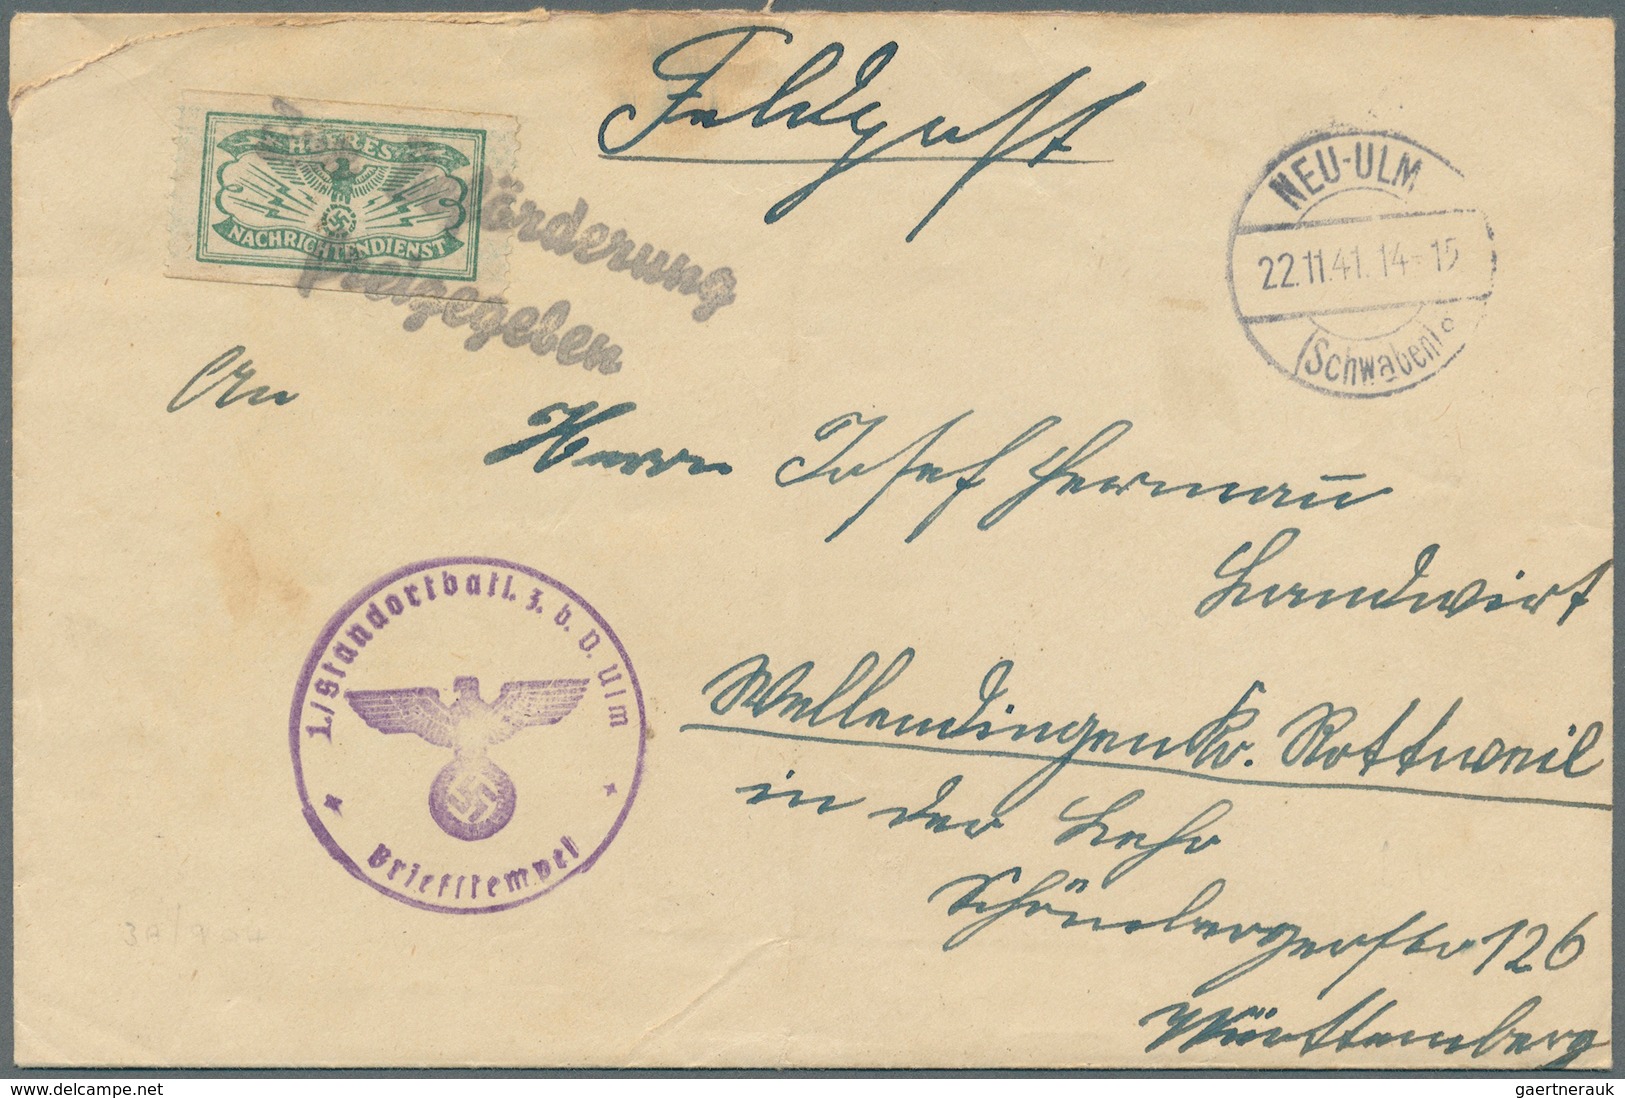 Feldpost
HEERES
NACHRICHTENDIENST
förderung
freigegeben
NEU-ULM
22.11.41. 14-15
(Schwaben) c
An
Herrn Josef Hermann
Landwirt
Wellendingen Kr. Rottweil
in der Lehr
Schömbergerstr 126
Württemberg
1./Standortbatl. z. b. V. Ulm
Briefstempel
www.delcampe.net
gaertnerauk